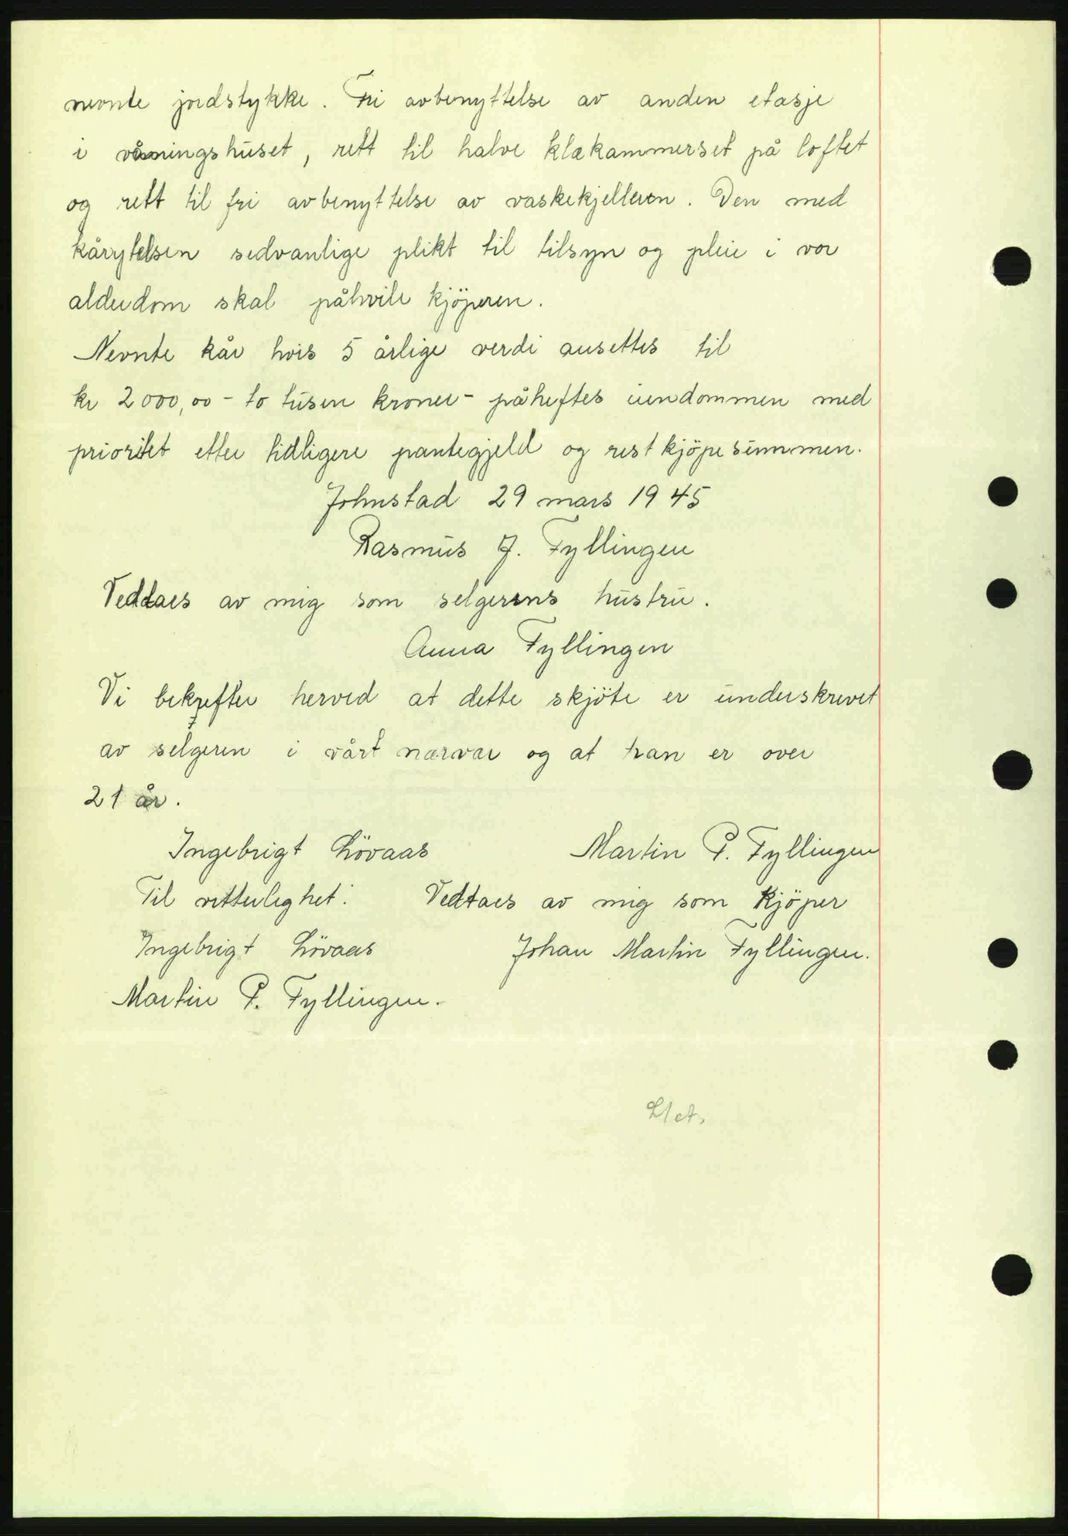 nevnte jordstykke. Fri avbenyttelse av anden etasje
i våningshuset, rett til halve klækammerset på loftet
og rett til fri avbenyttelse av vaskekjelleren. Den med
kårytelsen sedvanlige plikt til tilsyn og pleie i vor
alderdom skal påhvile kjöperen.
Nevnte kår hvis 5 årlige verdi ansettes til
kr 2000,00 - to tusen kroner - påheftes eiendommen med
prioritet etter tidligere pantegjeld og restkjöpesummen.
Johnstad 29 mars 1945
Rasmus J. Fyllingen
Vedtaes av mig som selgerens hustru.
Anna Fyllingen
Vi bekrefter herved at dette skjöte er underskrevet
av selgeren i vårt nærvær og at han er over
21 år.
Ingebrigt Lövaas Martin P. Fyllingen
Til vitterlighet: Vedtaes av mig som kjöper
Ingebrigt Lövaas Johan Martin Fyllingen.
Martin P. Fyllingen.